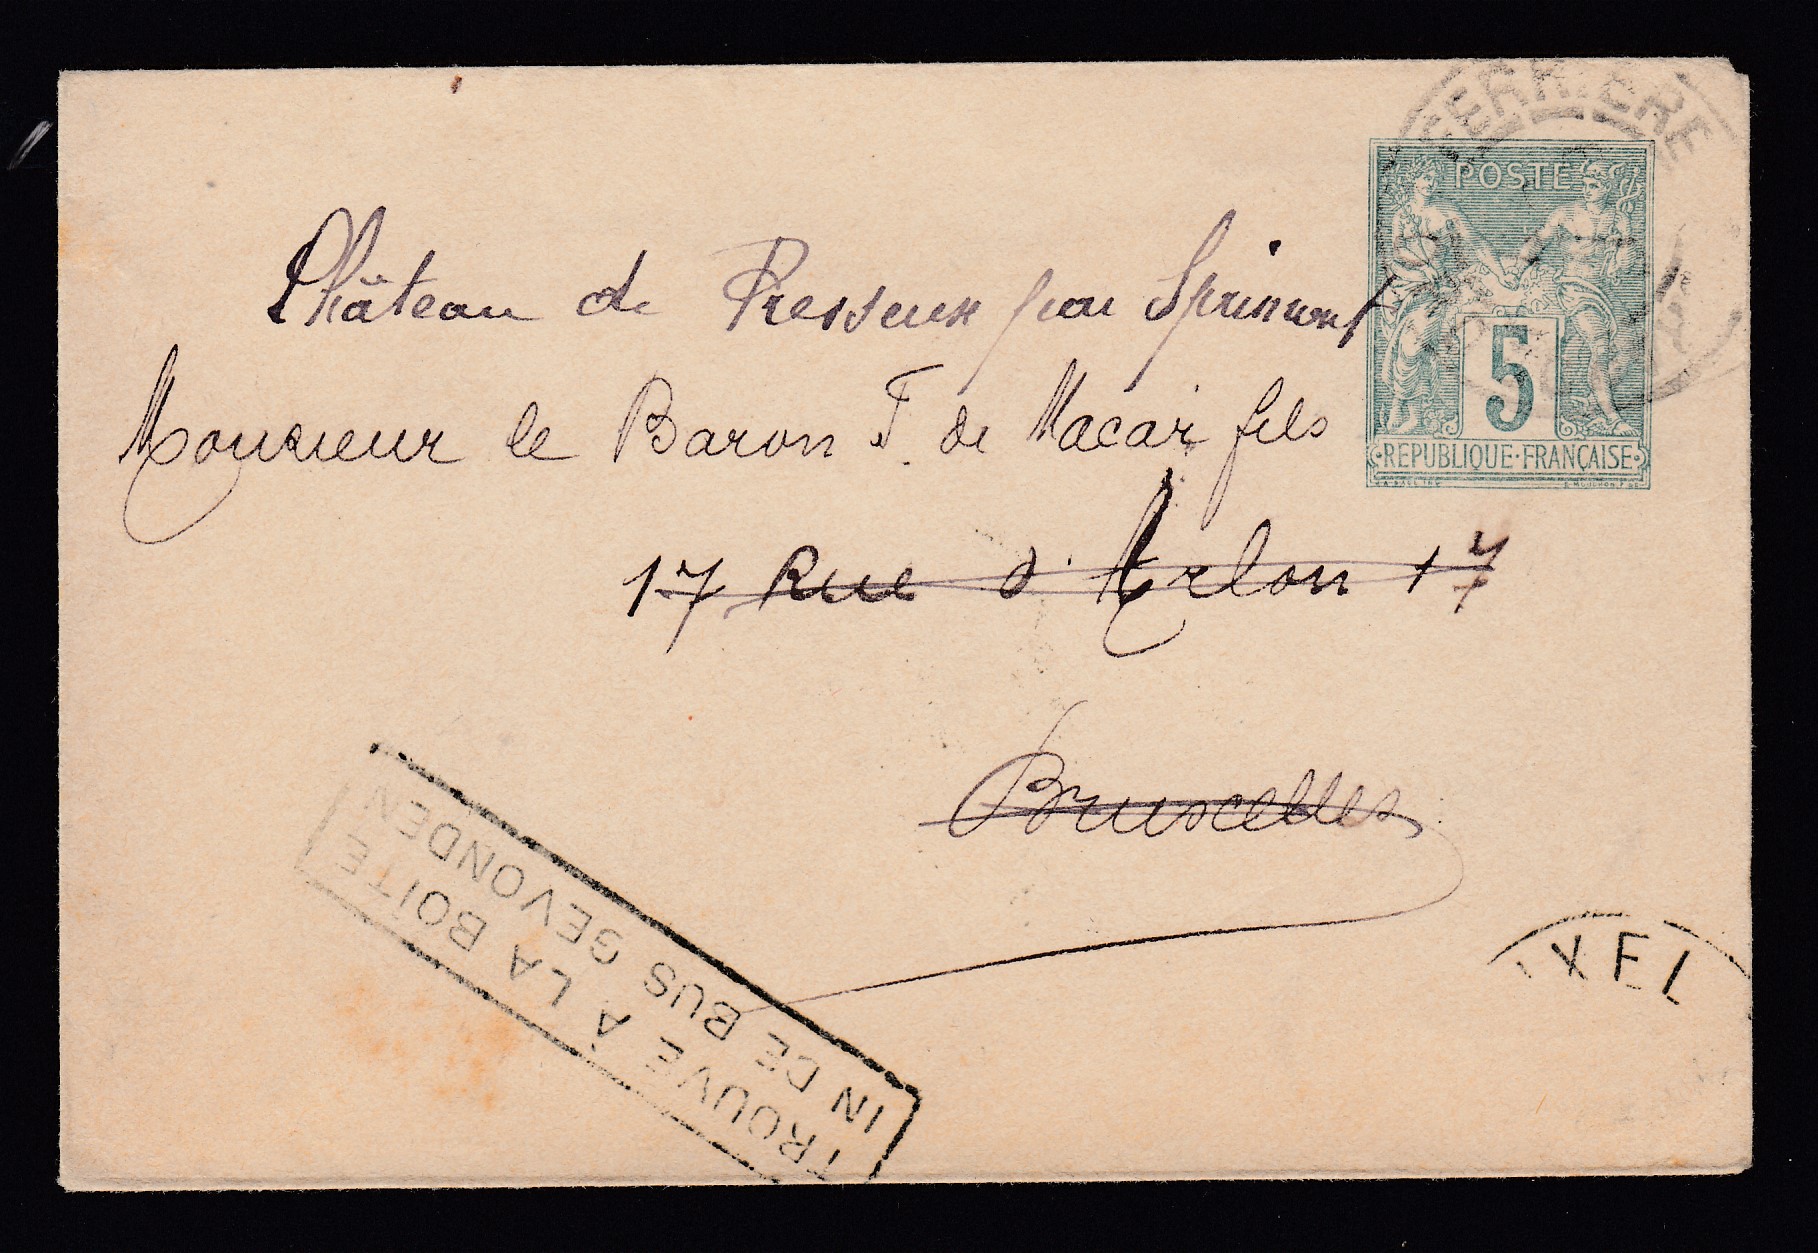 FERRIERE
POSTE
5
REPUBLIQUE·FRANÇAISE
Château deResseux par Sprimont
Monsieur le Baron F. de Macar fils
17 Rue d'Arlon 17
Bruxelles
TROUVÉ À LA BOÎTE
IN DE BUS GEVONDEN
IXEL